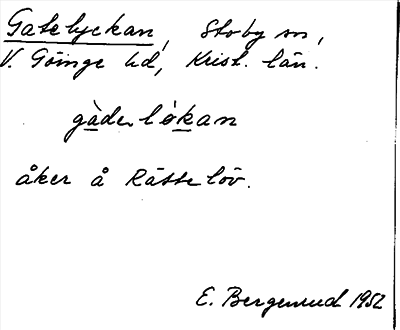 Gatelyckan, Stoby sn,
V. Göinge hd, Krist. län.
gàdelỏkan
åker å Rättelöv.
E. Bergenrud 1952